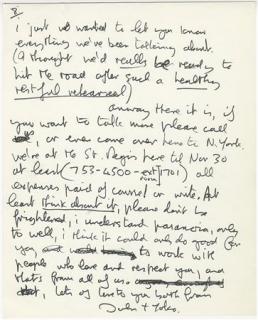 3.
i just wanted to let you know
everything we've been talking about.
(i thought we'd really be ready to
hit the road after such a healthy
restful rehearsal)
anyway Here it is, if
you want to talk more please call
us, or even come over here to N. York.
we're at the St. Regis here til Nov 30
at least (753-4500-ext room 1701) all
expenses paid of course! or write. At
least think about it, please don't be
frightened, i understand paranoia, only
to well, i think it could only do good for
you, to work with
people who love and respect you, and
that's from all of us
lots of love to you both from
John + Yoko.